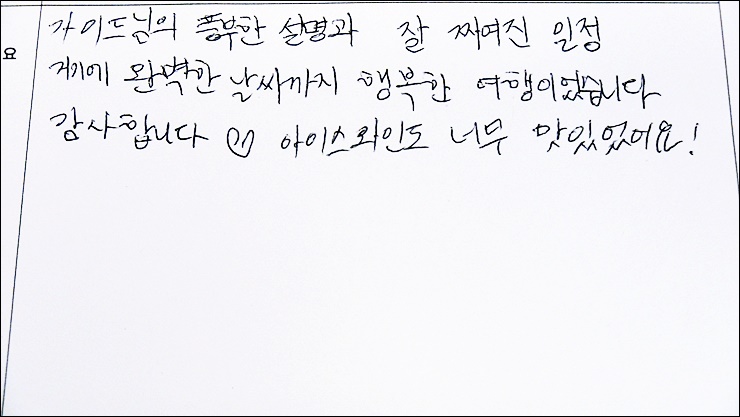 가이드님의 풍부한 설명과 잘 짜여진 일정
요
거기에 완벽한 날씨까지 행복한 여행이었습니다
감사합니다 ♡ 아이스와인도 너무 맛있었어요!